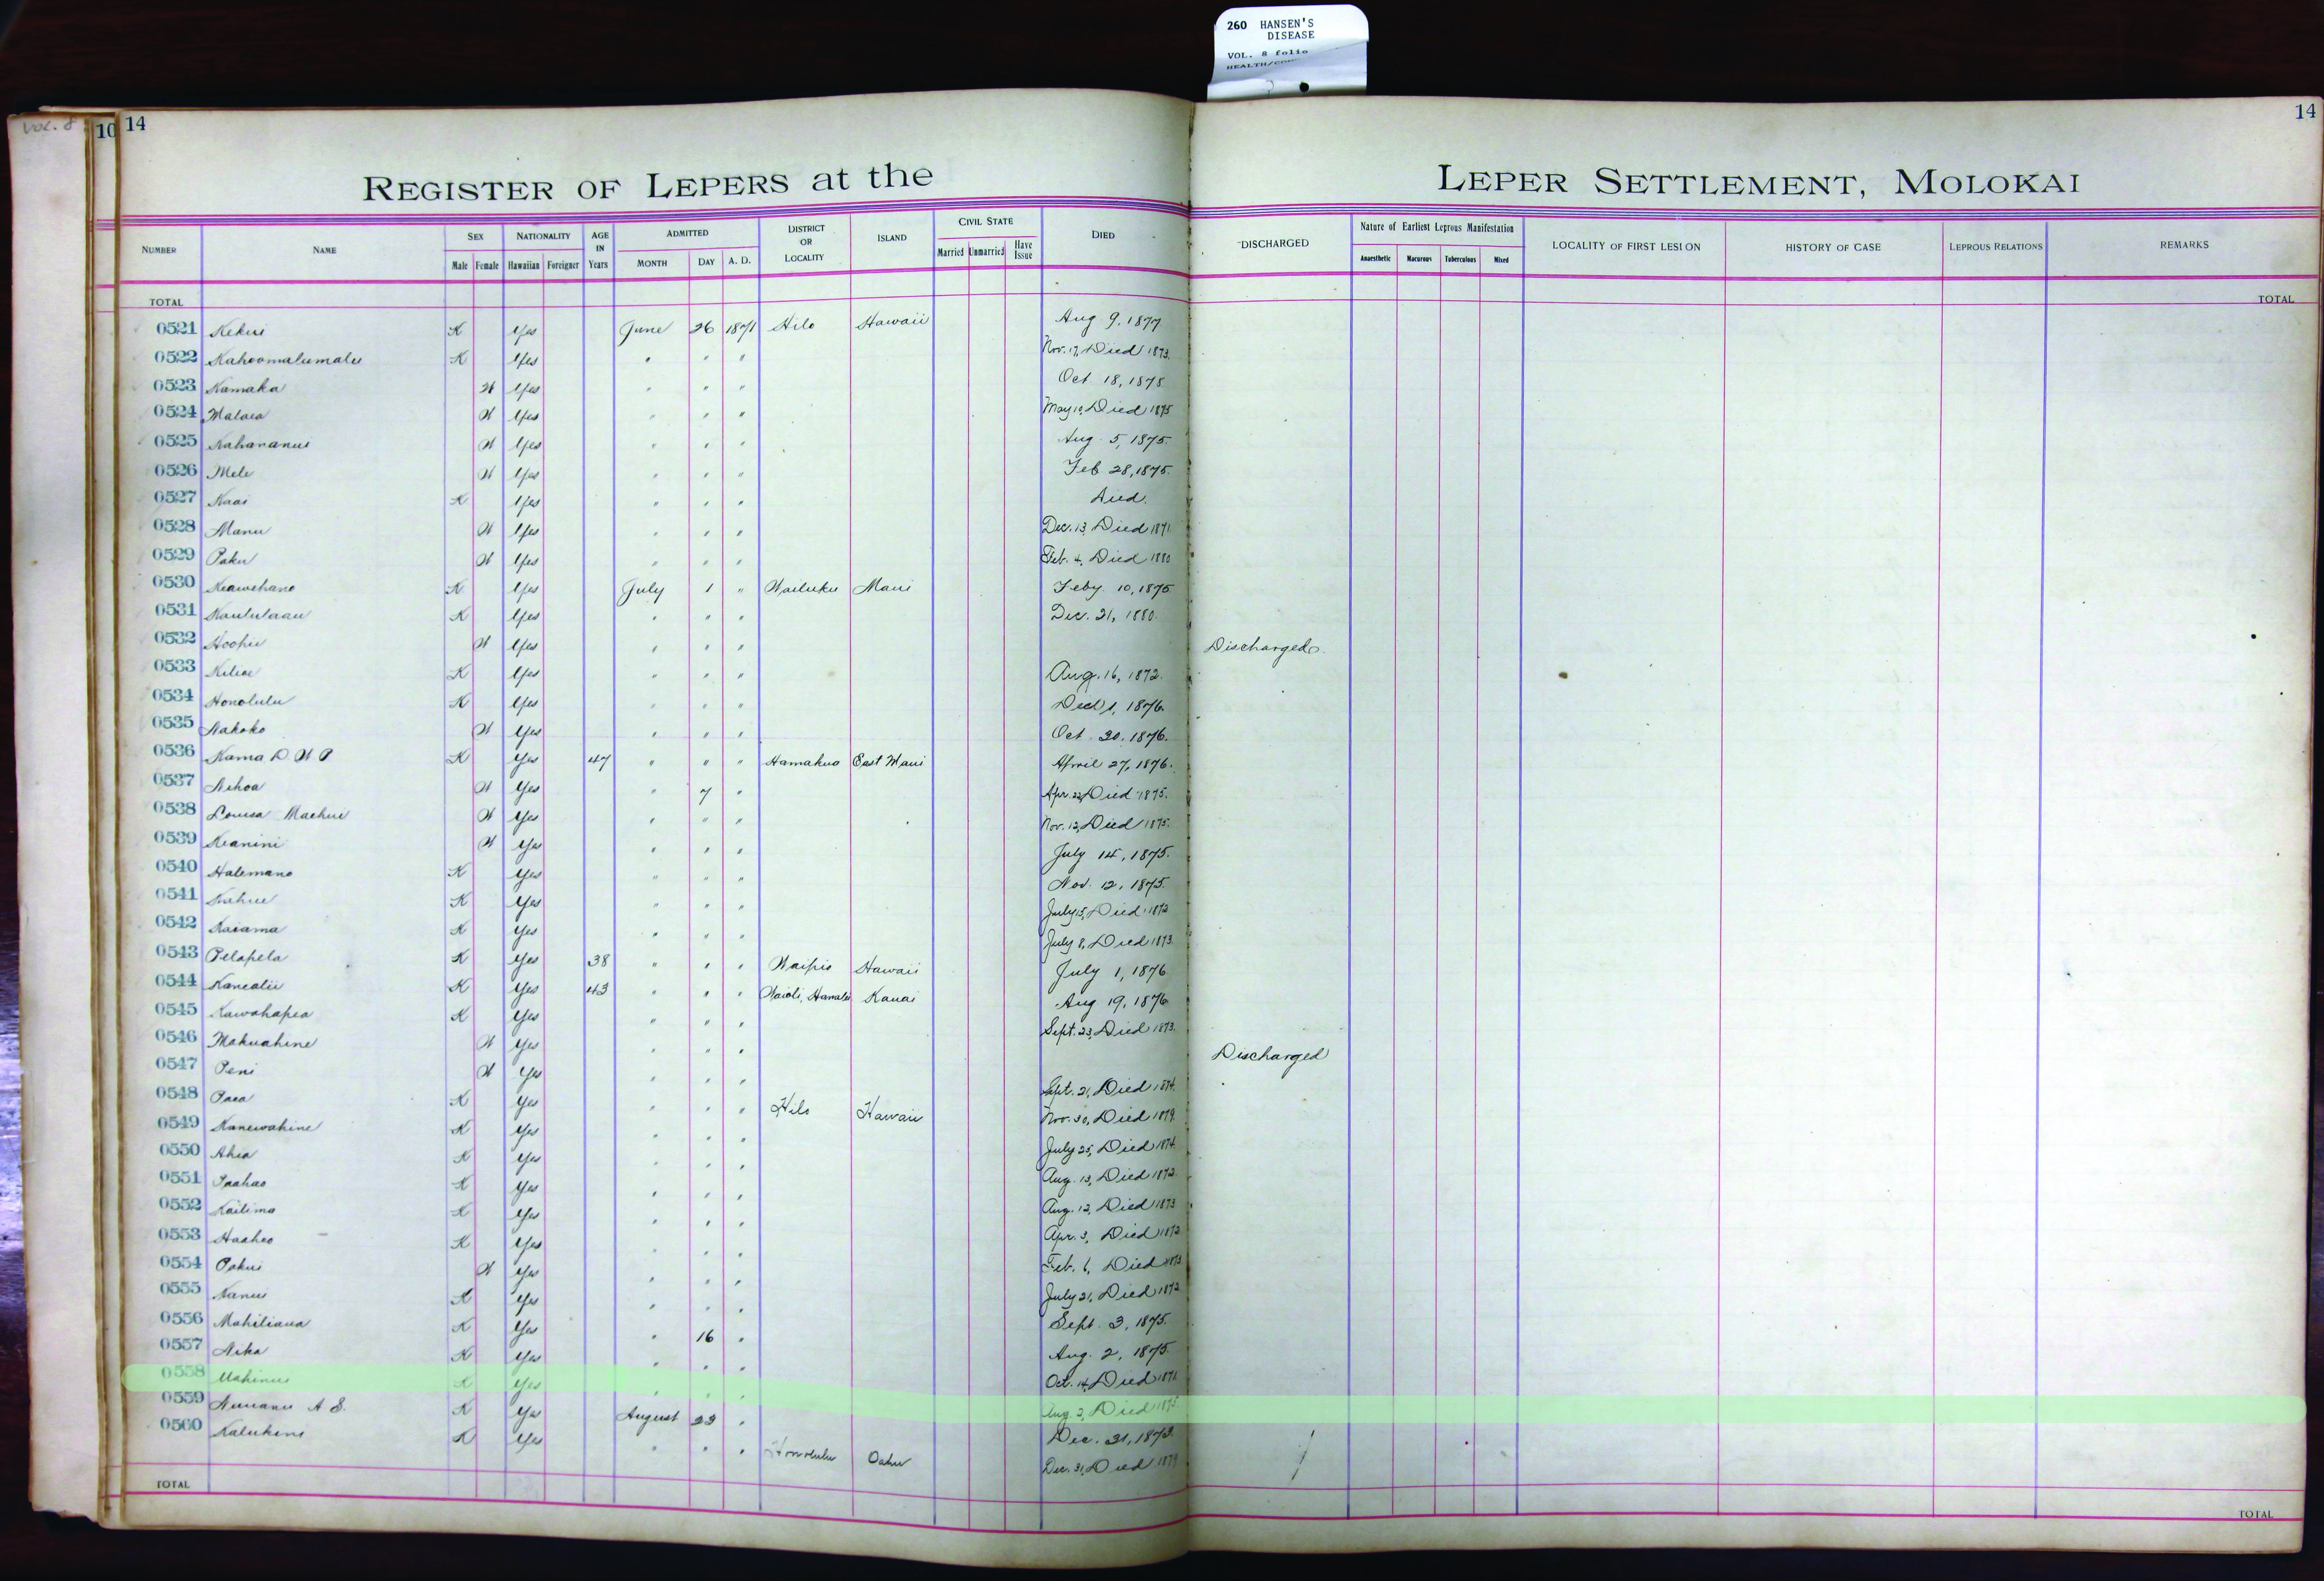 260 HANSEN'S
DISEASE
VOL. 8 folio
VOL. 8
10 14
14
REGISTER OF LEPERS at the LEPER SETTLEMENT, MOLOKAI
NUMBER NAME SEX Male Female NATIONALITY Hawaiian Foreigner AGE IN Years ADMITTED MONTH DAY A. D. DISTRICT OR LOCALITY ISLAND CIVIL STATE Married Unmarried Have Issue DIED DISCHARGED Nature of Earliest Leprous Manifestation Anaesthetic Macurous Tuberculous Mixed LOCALITY OF FIRST LESION HISTORY OF CASE LEPROUS RELATIONS REMARKS
TOTAL TOTAL
0521 Kekui K Yes June 26 1871 Hilo Hawaii Aug 9, 1877
0522 Kahoomalumalu K Yes " " " Nov. 17, Died 1873.
0523 Kamaka W Yes " " " Oct 18, 1875
0524 Malaea W Yes " " " May 10, Died 1875
0525 Kahananui W Yes " " " Aug. 5, 1875.
0526 Mele W Yes " " " Feb 28, 1875.
0527 Kaai K Yes " " " Died.
0528 Manu W Yes " " " Dec. 13, Died 1871
0529 Paku W Yes " " " Feb. 4, Died 1880
0530 Keawehano K Yes July 1 " Wailuku Maui Feby 10, 1875
0531 Kaululaau K Yes " " " Dec. 21, 1880.
0532 Hoohii W Yes " " " Discharged.
0533 Kiliae K Yes " " " Aug. 16, 1872.
0534 Honolulu K Yes " " " 1, 1876.
0535 Nakoko W Yes " " " Oct. 20, 1876.
0536 Kama D. W P K Yes 47 " " " Hamakua East Maui April 27, 1876.
0537 Nihoa W Yes " 7 " Apr. 22, Died 1875.
0538 Louisa Maehui W Yes " " " Nov. 12, Died 1875.
0539 Keanini W Yes " " " July 14, 1875.
0540 Halemano K Yes " " " Nov. 12, 1875.
0541 Kahue K Yes " " " July 15, Died 1872
0542 Kaiama K Yes " " " July 8, Died 1873.
0543 Pelapela K Yes 38 " " " Waipio Hawaii July 1, 1876
0544 Kanealii K Yes 43 " " " Waioli, Hanalei Kauai Aug 19, 1876
0545 Kawahapea K Yes " " " Sept. 23, Died 1873.
0546 Makuahine W Yes " " " Discharged
0547 Peni W Yes " " " Sept. 21, Died 1874.
0548 Paea K Yes " " " Hilo Hawaii Nov. 30, Died 1879.
0549 Kanewahine K Yes " " " July 25, Died 1874.
0550 Ahia K Yes " " " Aug. 13, Died 1872.
0551 Paahao K Yes " " " Aug. 12, Died 1873
0552 Kailima K Yes " " " Apr. 3, Died 1872
0553 Haaheo K Yes " " " Feb. 6, Died 1873
0554 Pakui W Yes " " " July 21, Died 1872
0555 Nanui K Yes " " " Sept. 3, 1875.
0556 Mahiliaua K Yes " 16 " Aug. 2, 1875.
0557 Nika K Yes " " " Oct. 14, Died 1871
0558 Mahinui K Yes " " " Aug 2, Died 1875
0559 Nuuanu A S. K Yes August 23 " Dec. 31, 1873.
0560 Kalukini K Yes " " " Honolulu Oahu Dec. 31, Died 1879
TOTAL TOTAL